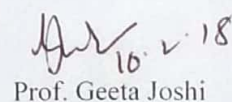 10.2.18
Prof. Geeta Joshi